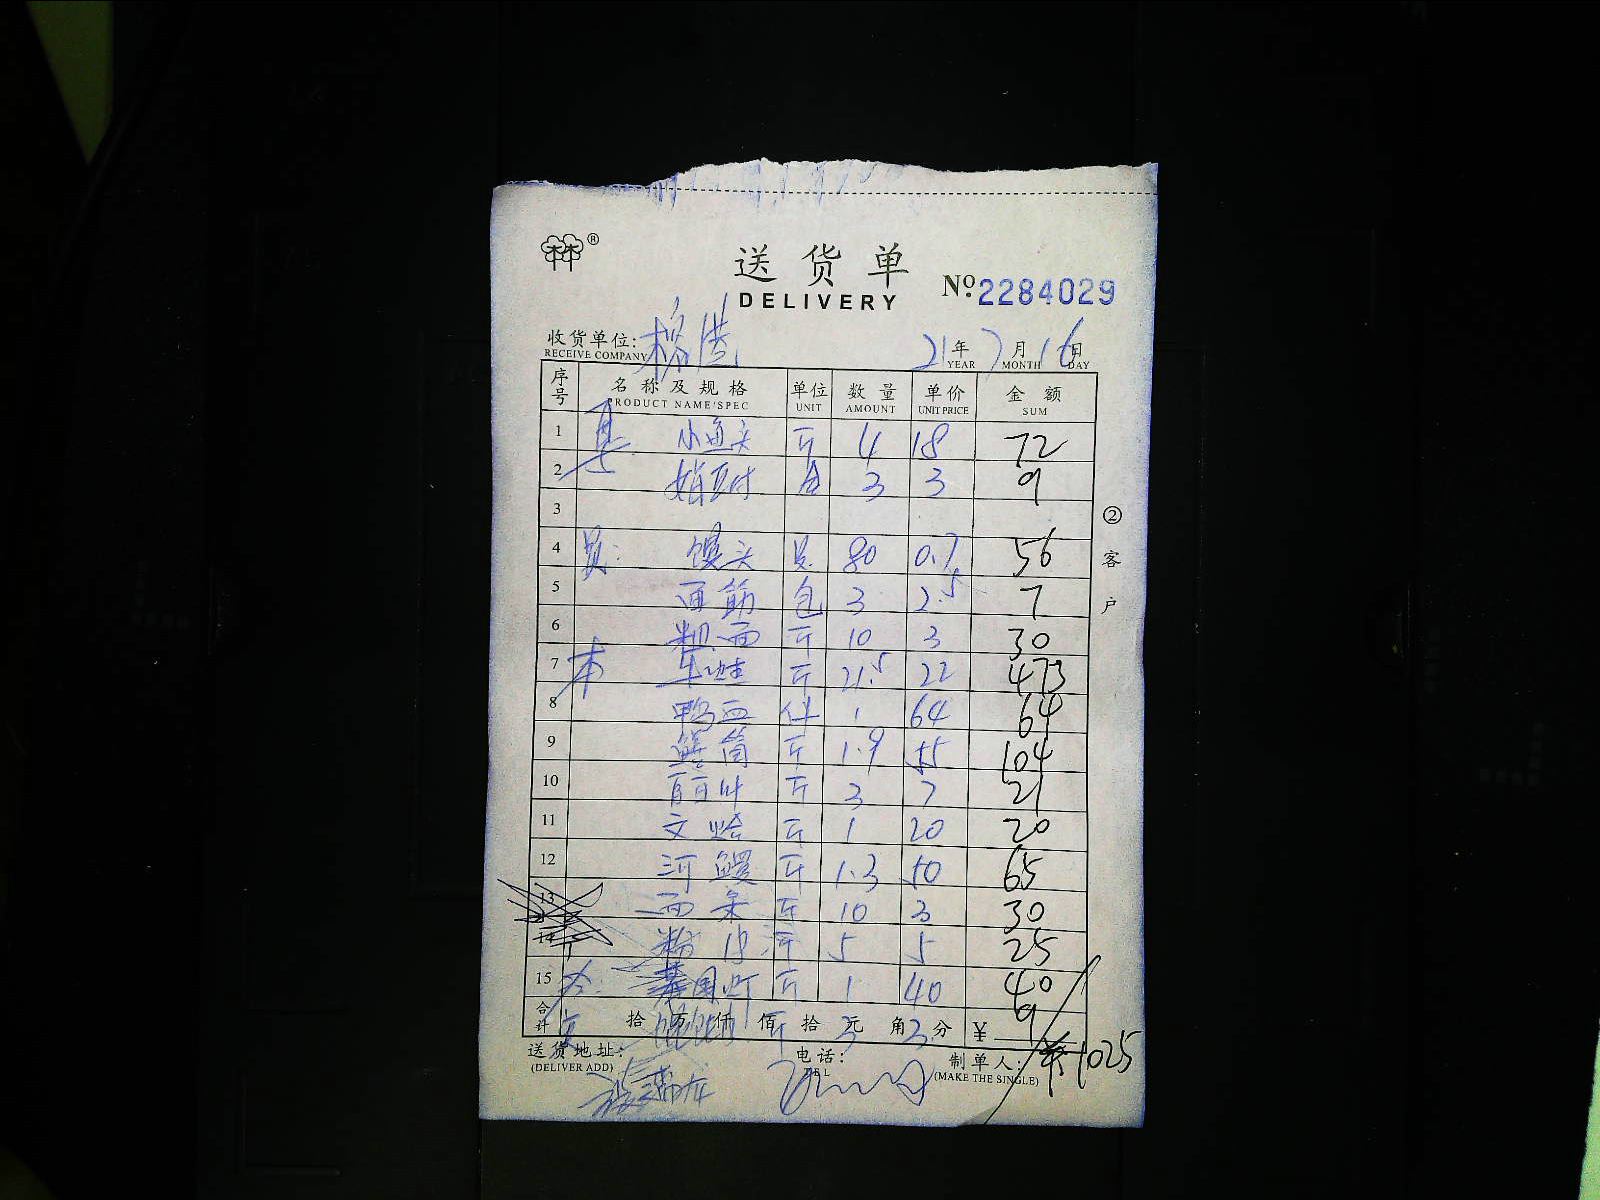 ®
送货单
DELIVERY
No. 2284029
收货单位:
RECEIVE COMPANY
21年 7月 16日
YEAR MONTH DAY
序号 名称及规格 单位 数量 单价 金额
PRODUCT NAME/SPEC UNIT AMOUNT UNIT PRICE SUM
1 小鱼头 斤 4 18 72
2 3 3 9
3
4 馒头 只 80 0.7 56
5 面筋 包 3 2.5 7
6 粗面 斤 10 3 30
7 本 牛蛙 斤 21.5 22 473
8 鸭血 件 1 64 64
9 鳝筒 斤 1.9 55 104
10 百叶 斤 3 7 21
11 文蛤 斤 1 20 20
12 河鳗 斤 1.3 50 65
13 面条 斤 10 3 30
14 粉 斤 5 5 25
15 斤 1 40 40
合计 拾 万 仟 佰 拾 元 角 分 ¥
斤 3 3 9
送货地址: 电话: 制单人: 1025
(DELIVER ADD) TEL (MAKE THE SINGLE)
②客户